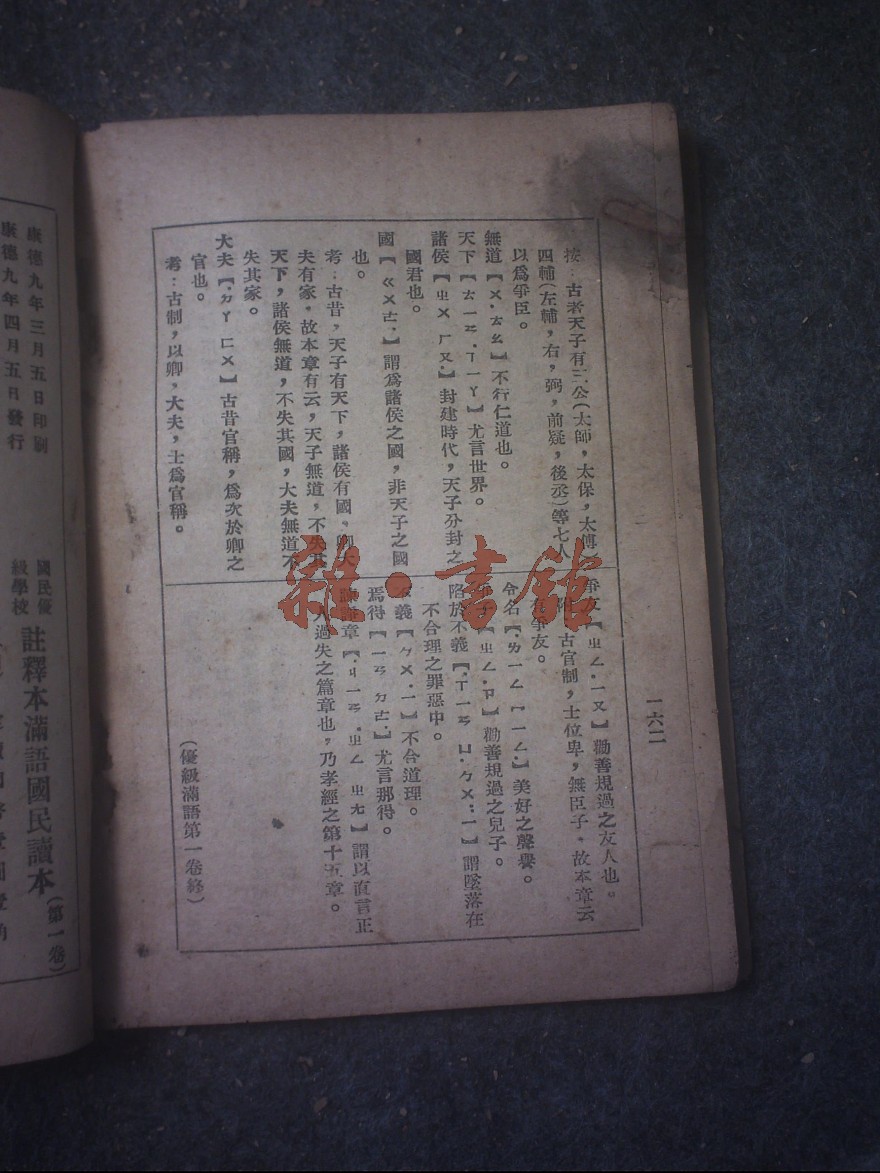 按：古者天子有三公（太師，太保，太傅
四輔（左輔，右，弼，前疑，後丞）等七人
以爲爭臣。
無道【ㄨ．ㄊㄠ】不行仁道也。
天下【ㄊㄧㄢ．ㄒㄧㄚ】尤言世界。
諸侯【ㄓㄨ ㄏㄡ．】封建時代，天子分封之
國君也。
國【ㄍㄨㄛ．】謂爲諸侯之國，非天子之國
也。
考：古昔，天子有天下，諸侯有國，卿大
夫有家．故本章有云，天子無道，不失其
天下，諸侯無道，不失其國，大夫無道不
失其家。
大夫【．ㄉㄚ ㄈㄨ】古昔官稱，爲次於卿之
官也。
考：古制，以卿，大夫，士爲官稱。
爭友【ㄓㄥ．ㄧㄡ】勸善規過之友人也。
古官制，士位卑，無臣子．故本章云
爭友。
令名【．ㄌㄧㄥ ㄇㄧㄥ．】美好之聲譽。
【ㄓㄥ．ㄗ】勸善規過之兒子。
陷於不義【．ㄒㄧㄢ ㄩ．ㄅㄨ：ㄧ】謂墜落在
不合理之罪惡中。
不義【ㄅㄨ．ㄧ】不合道理。
焉得【ㄧㄢ ㄉㄜ．】尤言那得。
章【．ㄐㄧㄢ．ㄓㄥ ㄓㄤ】謂以直言正
人過失之篇章也，乃孝經之第十五章。
（優級滿語第一卷終）
一六二
康德九年三月五日印刷
康德九年四月五日發行
國民優
級學校
註釋本滿語國民讀本（第一卷）
雜·書館